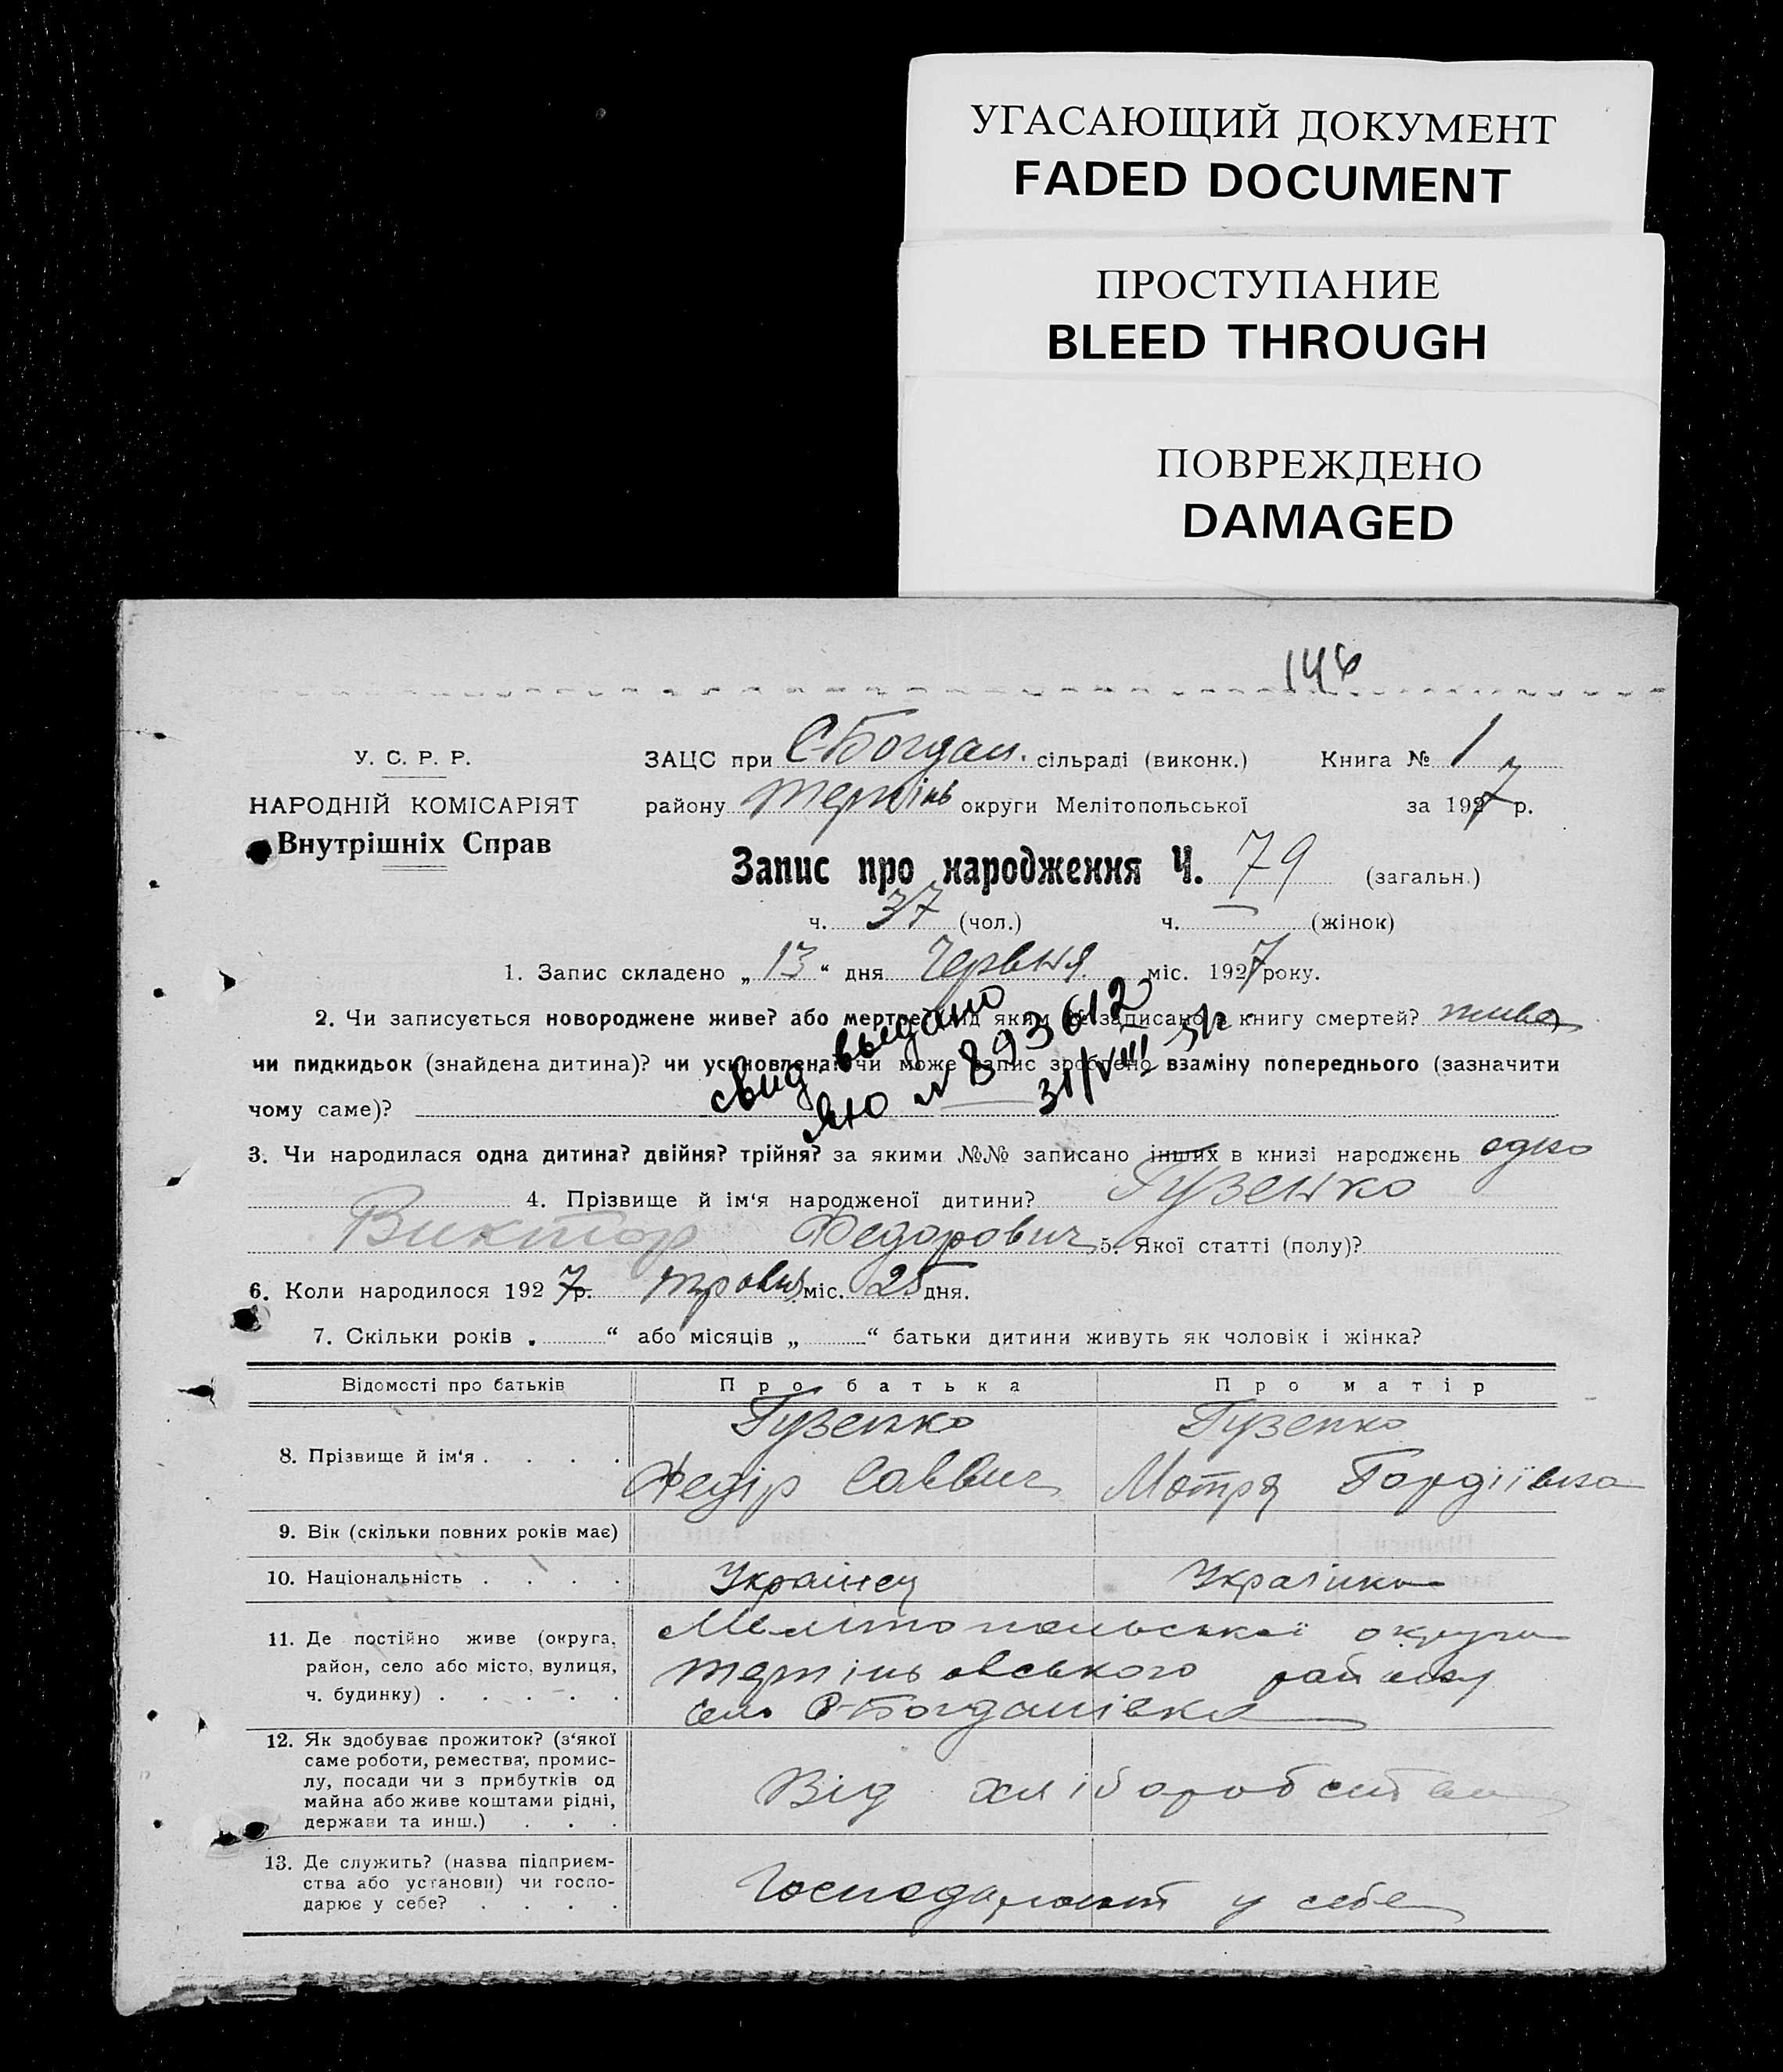 УГАСАЮЩИЙ ДОКУМЕНТ
FADED DOCUMENT
ПРОСТУПАНИЕ
BLEED THROUGH
ПОВРЕЖДЕНО
DAMAGED
146
У. С. Р. Р.
НАРОДНІЙ КОМІСАРІЯТ
Внутрішніх Справ
ЗАЦС при С-Богдан. сільраді (виконк.) Книга № 1
району Терпінь округи Мелітопольської за 1927 р.
Запис про народження Ч. 79 (загальн.)
ч. 37 (чол.) ч. — (жінок)
1. Запис складено „13“ дня Червня міс. 1927 року.
2. Чи записується новороджене живе? або мертве? під яким № записано в книгу смертей? живе
чи пидкидьок (знайдена дитина)? чи усиновлена? чи може запис зроблено взаміну попереднього (зазначити
чому саме)?
свид. выдано
ЯЮ № 893612
31/VIII 51г.
3. Чи народилася одна дитина? двійня? трійня? за якими №№ записано інших в книзі народжень одно
4. Прізвище й ім'я народженої дитини? Гузенко
Виктор Федорович 5. Якої статті (полу)?
6. Коли народилося 1927 р. травня міс. 25 дня.
7. Скільки років „ “ або місяців „ “ батьки дитини живуть як чоловік і жінка?
Відомості про батьків Про батька Про матір
8. Прізвище й ім'я . . . . Гузенко Федір Саввич Гузенко Мотря Гордіївна
9. Вік (скільки повних років має)
10. Національність . . . . Українец Українка
11. Де постійно живе (округа,
район, село або місто, вулиця,
ч. будинку) . . . . .
Мелітопольської округи
Терпіньовського району
село С-Богданівка
12. Як здобуває прожиток? (з'якої
саме роботи, ремества, промис-
лу, посади чи з прибутків од
майна або живе коштами рідні,
держави та инш.) . . .
Від хліборобства
13. Де служить? (назва підприєм-
ства або установи) чи госпо-
дарює у себе? . . . .
Господарюют у себе